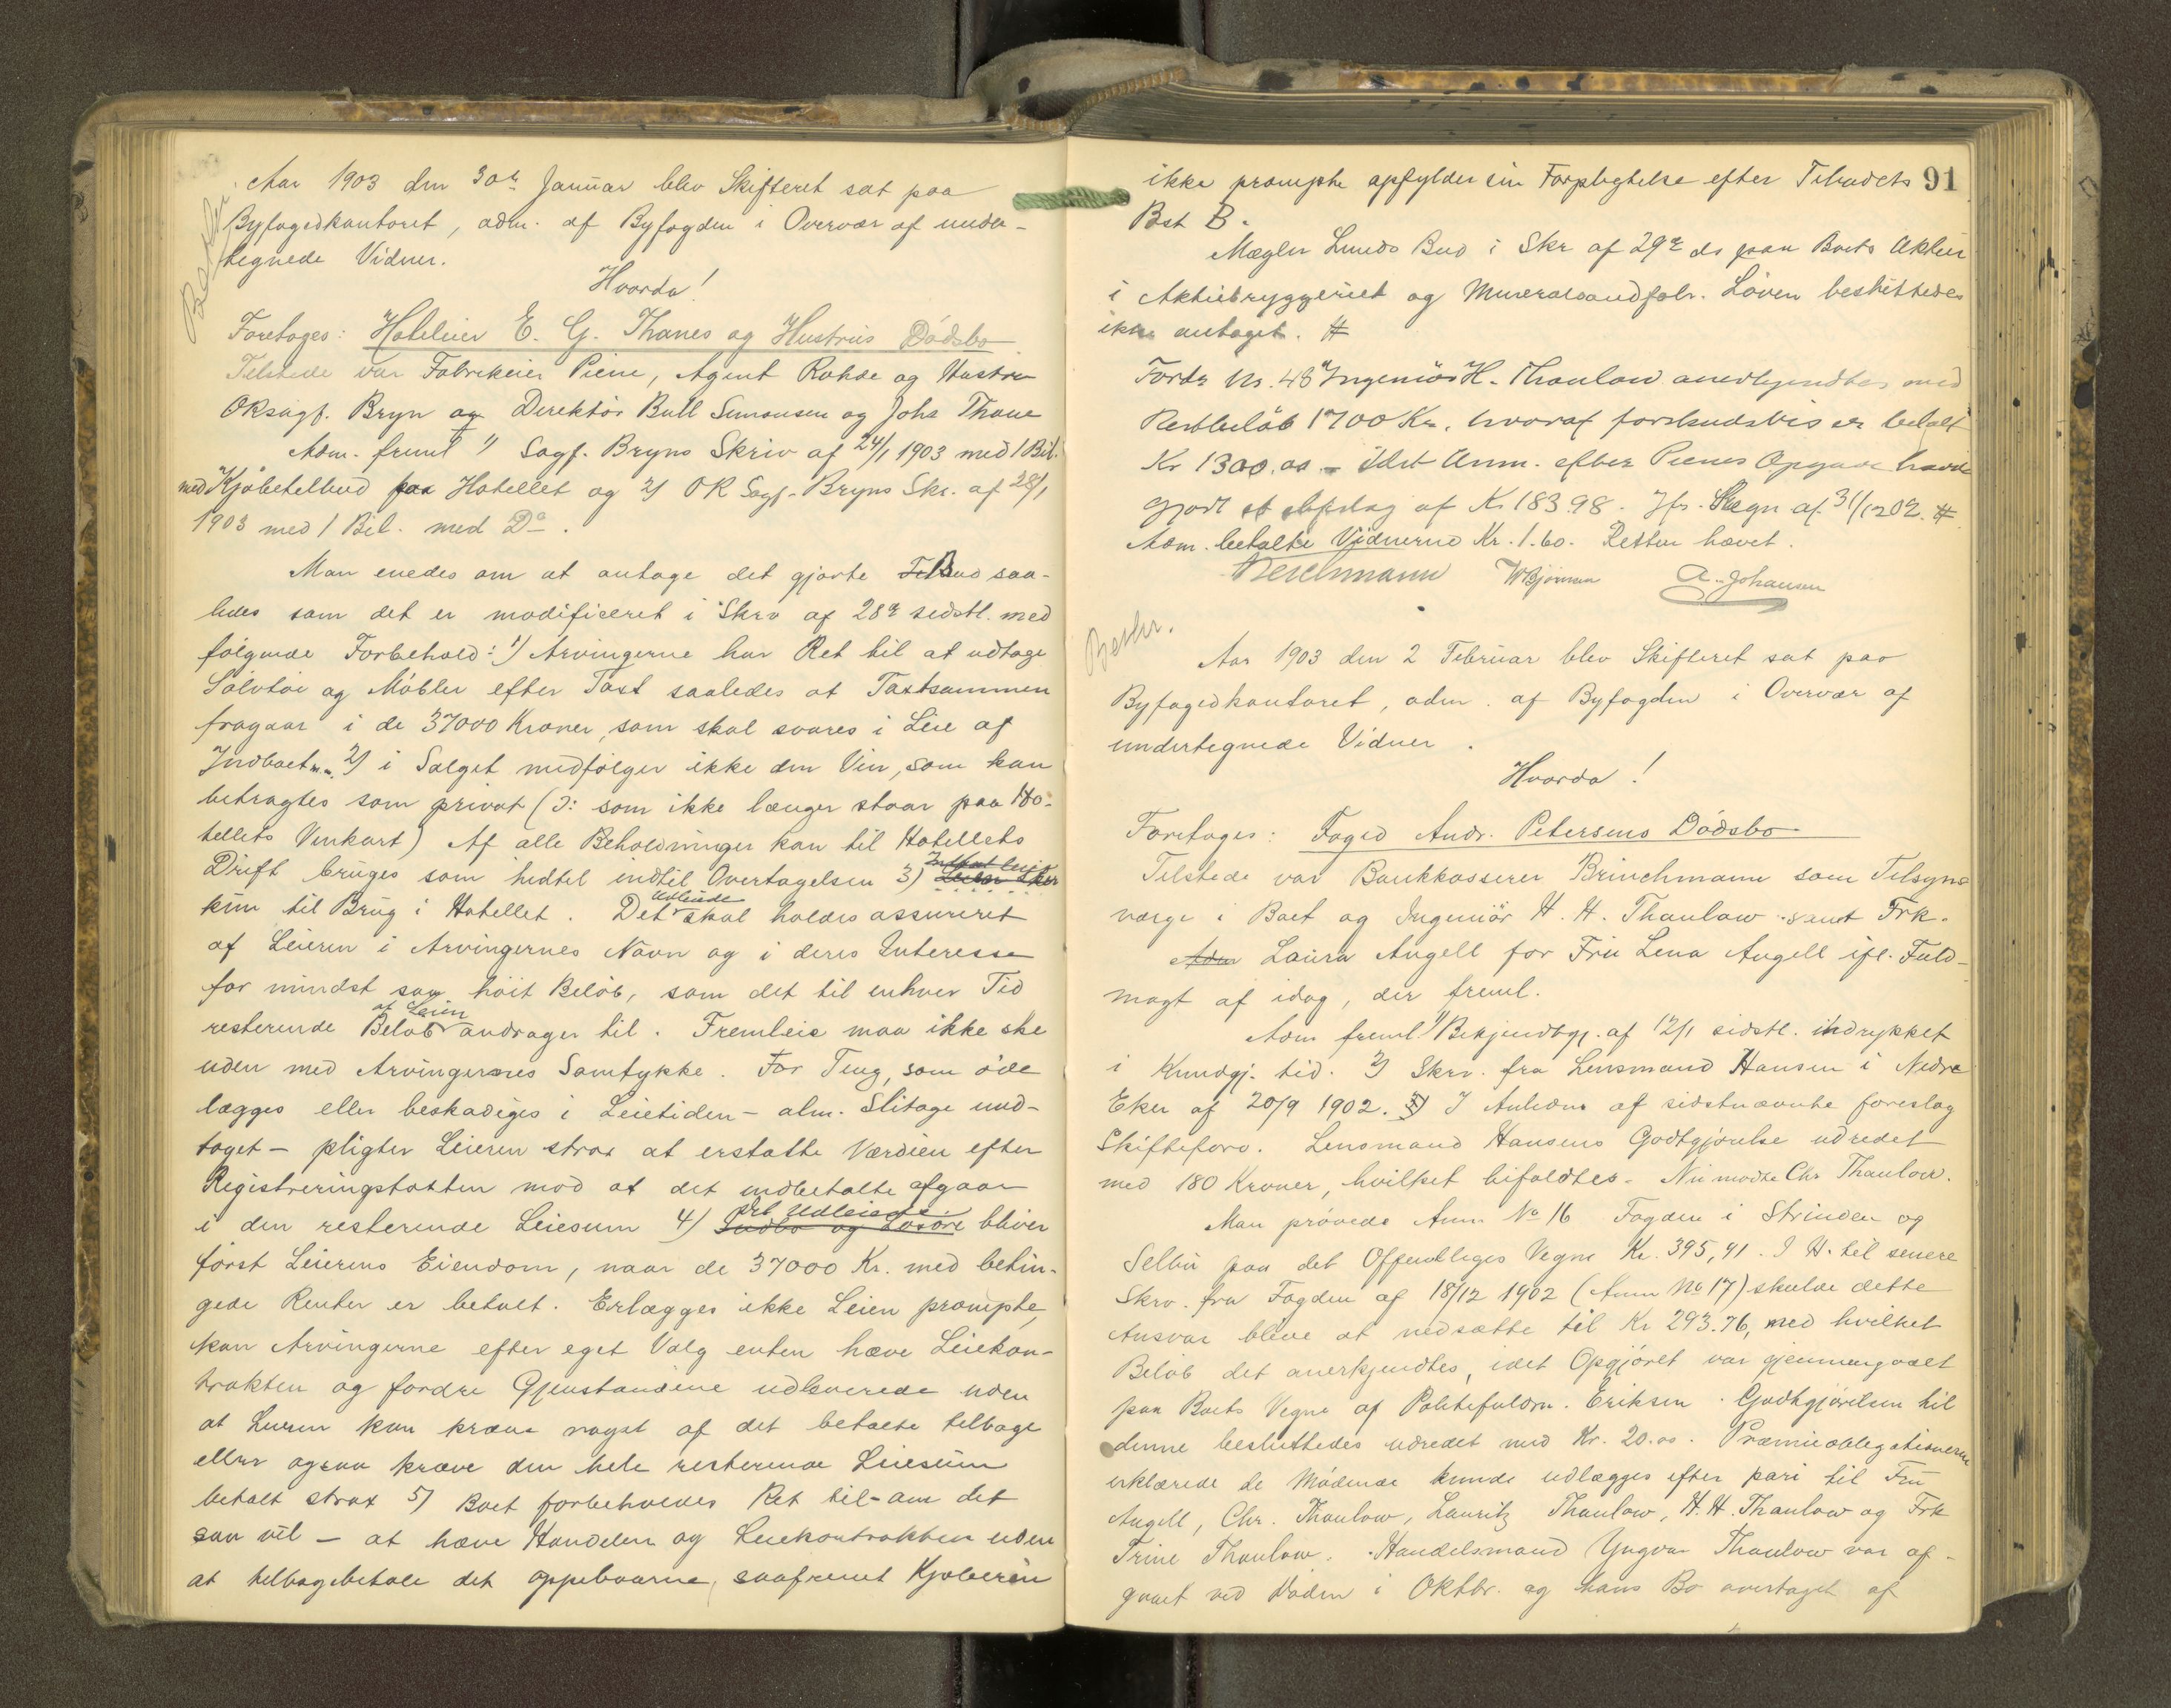 Aar 1903 den 30te Januar blev Skifteret sat paa
Byfogedkontoret, adm. af Byfogden i Overvær af under-
tegnede Vidner.
Hvorda!
Foretoges: Hoteleier E. G. Thanes og Hustrus Dödsbo
Tilstede var Fabrikeier Piene, Agent Rohde og Hustru
OKsagf. Bryn og Direktör Bull Simonsen og Johs Thane
Adm. freml 1) Sagf. Bryns Skriv af 24/1 1903 med 1 Bil.
med Kjöbetilbud paa Hotellet og 2) OR Sagf. Bryns Skr. af 28/1
1903 med 1 Bil. med Do.
Man enedes om at antage det gjorte Bud saa-
ledes som det er modificeret i Skrv af 28de sidstl. med
fölgende Forbehold: 1) Arvingerne har Ret til at udtage
Sölvtöi og Möbler efter Taxt saaledes at Taxtsummen
fragaar i de 37000 Kroner, som skal svares i Leie af
Indboet m.m. 2) i Salget medfölger ikke den Vin, som kan
betragtes som privat (ɔ: som ikke længer staar paa Ho-
tellets Vinkart) Af alle Beholdninger kan til Hotellets
Drift bruges som hidtil indtil Overtagelsen 3) Leien sker
kun til Brug i Hotellet. Det udleiede skal holdes assureret
af Leieren i Arvingernes Navn og i deres Interesse
for mindst saa höit Belöb, som det til enhver Tid
resterende Belöb af Leien andrager til. Fremleie maa ikke ske
uden med Arvingernes Samtykke. For Ting, som öde
lægges eller beskadiges i Leietiden - alm. Slitage und-
taget - pligter Leieren strax at erstatte Værdien efter
Registreringstaxten mod at det indbetalte afgaar
i den resterende Leiesum 4) det Udleiede Indbo og Lösöre bliver
först Leierens Eiendom, naar de 37000 Kr. med betin-
gede Renter er betalt. Erlægges ikke Leien prompte,
kan Arvingerne efter eget Valg enten hæve Leiekon-
trakten og fordre Gjenstandene udleverede uden
at Leieren kan kræve noget af det betalte tilbage
eller ogsaa kræve den hele resterende Leiesum
betalt strax 5) Boet forbeholdes Ret til - om det
saa vil - at hæve Handelen og Leiekontrakten uden
at tilbagebetale det oppebaarne, saafremt Kjöberen
91
ikke prompte opfylder sin Forpligtelse efter Tilbudets
Post B.
Mægler Lunds Bud i Skr af 29de ds paa Boets Aktier
i Aktiebryggeriet og Mineralvandfabr. Löven besluttedes
ikke antaget. #
Fordr No. 48 Ingeniör H. Thaulow anerkjendtes med
Restbelöb 1700 Kr. hvoraf forskudsvis er betalt
Kr 1300.00 - idet Anm. efter Pienes Opgave havde
gjort et Afslag af K. 183.98. Jfr. Regn af 31/12 02. #
Adm. betalte Vidnerne Kr. 1.60. Retten hævet.
W Björnson A. Johansen
Aar 1903 den 2 Februar blev Skifteret sat paa
Byfogedkontoret, adm. af Byfogden i Overvær af
undertegnede Vidner.
Hvorda!
Foretoges: Foged Andr. Petersens Dödsbo
Tilstede var Bankkasserer Brinchmann som Tilsyns
værge i Boet og Ingeniör H. H. Thaulow samt Frk.
Adm Laura Angell for Fru Lena Angell ifl. Fuld-
magt af idag, der freml.
Adm freml. 1) Bekjendtgj. af 12/1 sidstl. indrykket
i Kundgj. tid. 2) Skrv. fra Lensmand Hansen i Nedre
Eker af 20/9 1902. 3) I Anledn af sidstnævnte foreslog
Skifteforv. Lensmand Hansens Godtgjörelse udredet
med 180 Kroner, hvilket bifaldtes. Nu mödte Chr Thaulow.
Man prövede Anm No 16 Fogden i Strinden og
Selbu paa det Offentliges Vegne Kr. 395,91. I H. til senere
Skrv. fra Fogden af 18/12 1902 (Anm No 17) skulde dette
Ansvar blive at nedsætte til Kr 293.76, med hvilket
Belöb det anerkjendtes, idet Opgjöret var gjennemgaaet
paa Boets Vegne af Politifuldm. Eriksen. Godtgjörelsen til
denne besluttedes udredet med Kr. 20.00. Præmieobligationerne
erklærede de Mödende kunde udlægges efter pari til Fru
Angell, Chr. Thaulow, Lauritz Thaulow, H. H. Thaulow og Frk
Trine Thaulow. Handelsmand Yngvar Thaulow var af-
gaaet ved Döden i Oktbr. og hans Bo overtaget af